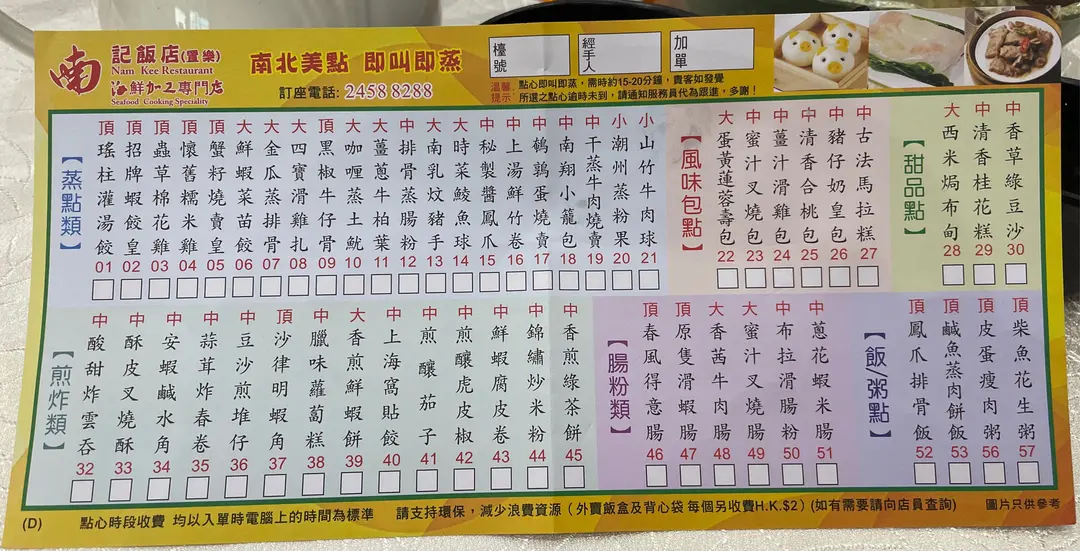 南
記飯店(置樂)
Nam Kee Restaurant
海鮮加工專門店
Seafood Cooking Speciality
南北美點 即叫即蒸
訂座電話: 2458 8288
檯號
經手人
加單
溫馨提示:
點心即叫即蒸，需時約15-20分鐘，貴客如發覺
所選之點心逾時未到，請通知服務員代為跟進，多謝！
【蒸點類】
頂 瑤柱灌湯餃 01
頂 招牌蝦餃皇 02
頂 蟲草棉花雞 03
頂 懷舊糯米雞 04
頂 蟹籽燒賣皇 05
大 鮮蝦菜苗餃 06
大 金瓜蒸排骨 07
大 四寶滑雞扎 08
頂 黑椒牛仔骨 09
大 咖喱蒸土魷 10
大 薑蔥牛柏葉 11
中 排骨蒸腸粉 12
大 南乳炆豬手 13
大 時菜鯪魚球 14
中 秘製醬鳳爪 15
中 上湯鮮竹卷 16
中 鵪鶉蛋燒賣 17
中 南翔小籠包 18
中 干蒸牛肉燒賣 19
小 潮州蒸粉果 20
小 山竹牛肉球 21
【風味包點】
大 蛋黃蓮蓉壽包 22
中 蜜汁叉燒包 23
中 薑汁滑雞包 24
中 清香合桃包 25
中 豬仔奶皇包 26
中 古法馬拉糕 27
【甜品點】
大 西米焗布甸 28
中 清香桂花糕 29
中 香草綠豆沙 30
【煎炸類】
中 酸甜炸雲吞 32
中 酥皮叉燒酥 33
中 安蝦鹹水角 34
中 蒜茸炸春卷 35
中 豆沙煎堆仔 36
頂 沙律明蝦角 37
中 臘味蘿蔔糕 38
大 香煎鮮蝦餅 39
中 上海窩貼餃 40
中 煎釀茄子 41
中 煎釀虎皮椒 42
中 鮮蝦腐皮卷 43
中 錦繡炒米粉 44
中 香煎綠茶餅 45
【腸粉類】
頂 春風得意腸 46
頂 原隻滑蝦腸 47
大 香茜牛肉腸 48
大 蜜汁叉燒腸 49
中 布拉滑腸粉 50
中 蔥花蝦米腸 51
【飯/粥點】
頂 鳳爪排骨飯 52
頂 鹹魚蒸肉餅飯 53
頂 皮蛋瘦肉粥 56
頂 柴魚花生粥 57
(D) 點心時段收費 均以入單時電腦上的時間為標準 請支持環保，減少浪費資源（外賣飯盒及背心袋 每個另收費H.K.$2）(如有需要請向店員查詢) 圖片只供參考